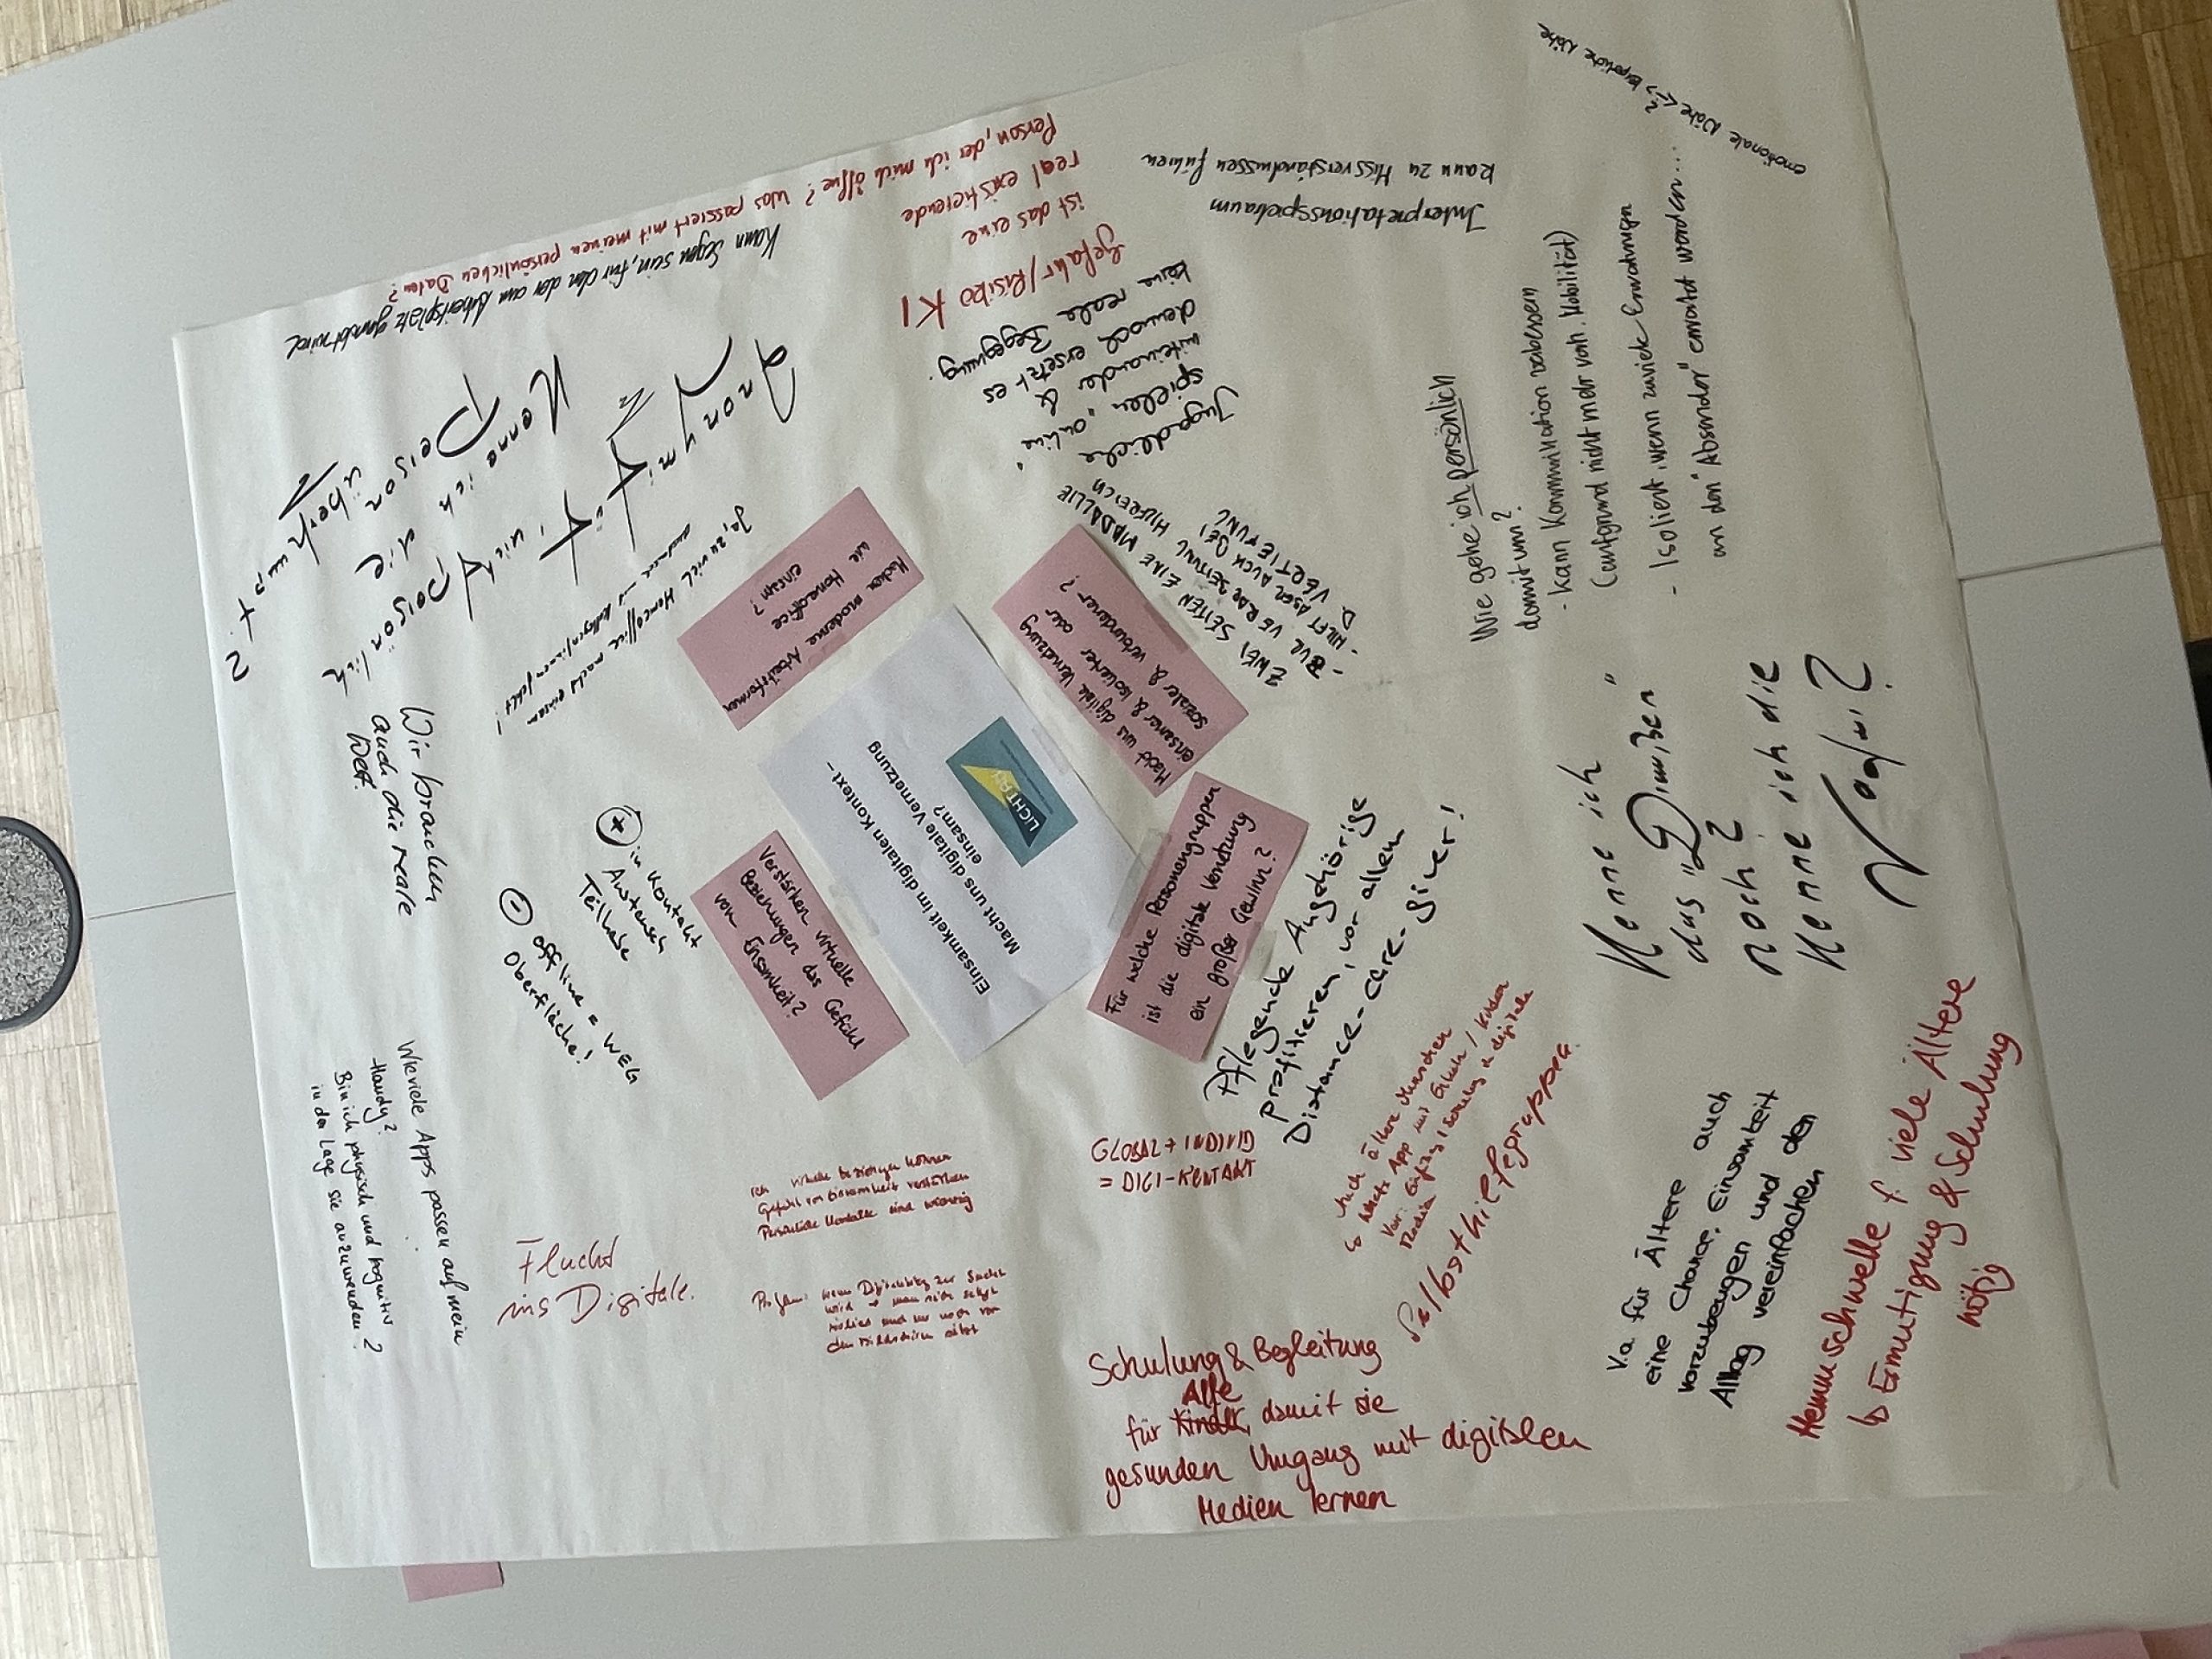 Einsamkeit im digitalen Kontext –
Macht uns digitale Vernetzung
einsam?
LICHTAN
Machen moderne Arbeitsformen
wie Homeoffice
einsam?
Ja, zu viel Homeoffice macht einsam
Macht uns digitale Vernetzung
einsamer & isolierter oder
sozialer & verbundener?
ZWEI SEITEN EINE MADALLIE
HILFT ABER AUCH BEI
D. VERTIEFUNG
Für welche Personengruppen
ist die digitale Vernetzung
ein großer Gewinn?
Pflegende Angehörige
profitieren, vor allem
Distance-Care-giver!
Verstärken virtuelle
Beziehungen das Gefühl
von Einsamkeit?
+ in Kontakt
Austausch
Teilhabe
- offline = WEG
Oberfläche!
Wir brauchen
auch die reale
Welt
Wieviele Apps passen auf mein
Handy?
Bin ich physisch und kognitiv
in der Lage sie anzuwenden?
Flucht
ins Digitale.
virtuelle Beziehungen können
Gefühl von Einsamkeit verstärken
Persönliche Kontakte sind wichtig
wird + man sich selbst
isoliert und nur noch vor
GLOBAL + INDIVID
= DIGI-KONTAKT
Auch ältere Menschen
Selbsthilfegruppen
Schulung & Begleitung
Alle
für Kinder, damit sie
gesunden Umgang mit digitalen
Medien lernen
V.a. für Ältere auch
eine Chance, Einsamkeit
vorzubeugen und den
Alltag vereinfachen
Hemmschwelle f. viele Ältere
↳ Ermutigung & Schulung
nötig
Kenne ich
das "Draußen"
noch?
Kenne ich die
Nachb.?
Wie gehe ich persönlich
damit um?
- kann Kommunikation verbessern
(aufgrund nicht mehr vorh. Mobilität)
- Isoliert, wenn zuviele Erwartungen
an den "Absender" erwartet werden...
emotionale Nähe <=> körperliche Nähe
?
Interpretationsspielraum
kann zu Missverständnissen führen
Jugendliche
spielen "online"
miteinander &
dennoch ersetzt es
keine reale Begegnung.
Gefahr/Risiko KI
ist das eine
real existierende
Person, der ich mich öffne? Was passiert mit meinen persönlichen Daten?
Kann Segen sein, für den der am Arbeitsplatz gemobbt wird
Anonymität
Kenne ich die
Person
überhaupt?